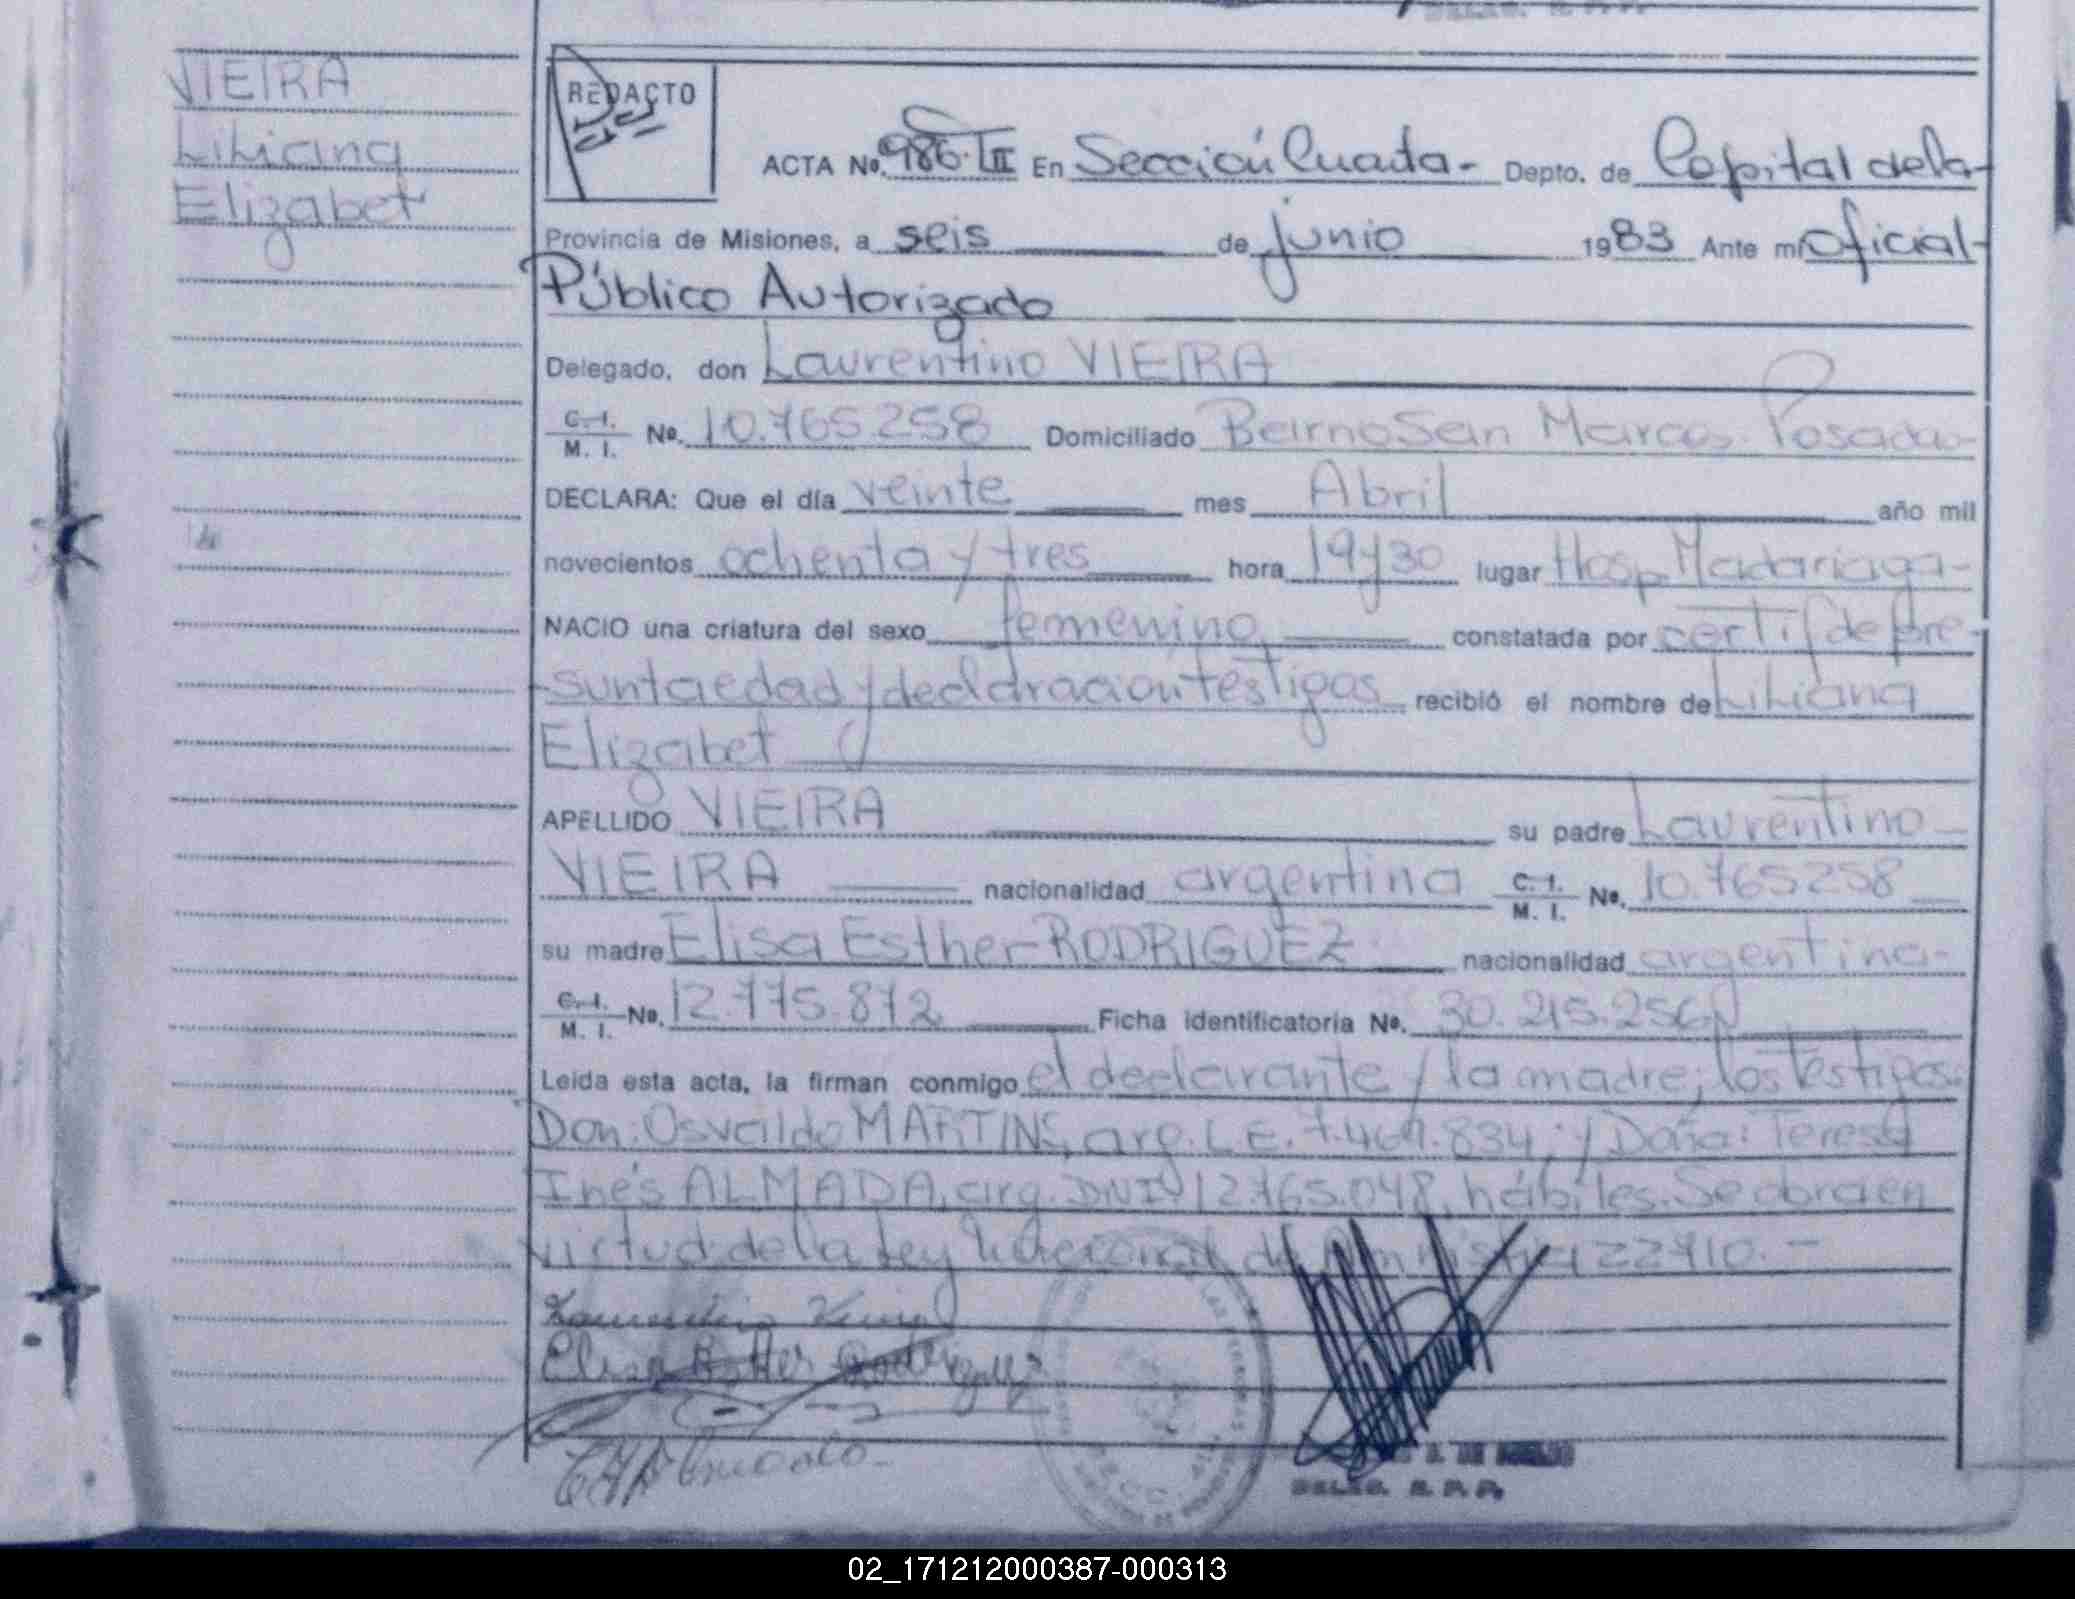 VIEIRA
Liliana
Elizabet
REDACTO
ACTA No. 986. III En Sección Cuarta- Depto. de Capital de la-
Provincia de Misiones, a seis de junio 1983 Ante mí Oficial-
Público Autorizado
Delegado, don Laurentino VIEIRA
C. I. M. I. No. 10.765258 Domiciliado Barrio San Marcos. Posadas-
DECLARA: Que el día veinte mes Abril año mil
novecientos ochenta y tres hora 19y30 lugar Hosp Madariaga-
NACIO una criatura del sexo femenino constatada por certif de pre-
sunta edad y declaración testigos recibió el nombre de Liliana
Elizabet
APELLIDO VIEIRA su padre Laurentino
VIEIRA nacionalidad argentina C. I. M. I. No. 10.765258
su madre Elisa Esther RODRIGUEZ nacionalidad argentina-
C. I. M. I. No. 12.775.872 Ficha identificatoria No. 30.215.256
Leída esta acta, la firman conmigo el declarante y la madre; los testigos:
Don: Osvaldo MARTINS, arg. L.E. 7.469.834; y Doña: Teresa
Inés ALMADA, arg. DNI 12765.048, hábiles. Se abra en
virtud de la Ley Nacional de Amnistía 22410.-
Elisa Esther Rodriguez
DELEG. R. P. P.
02_171212000387-000313